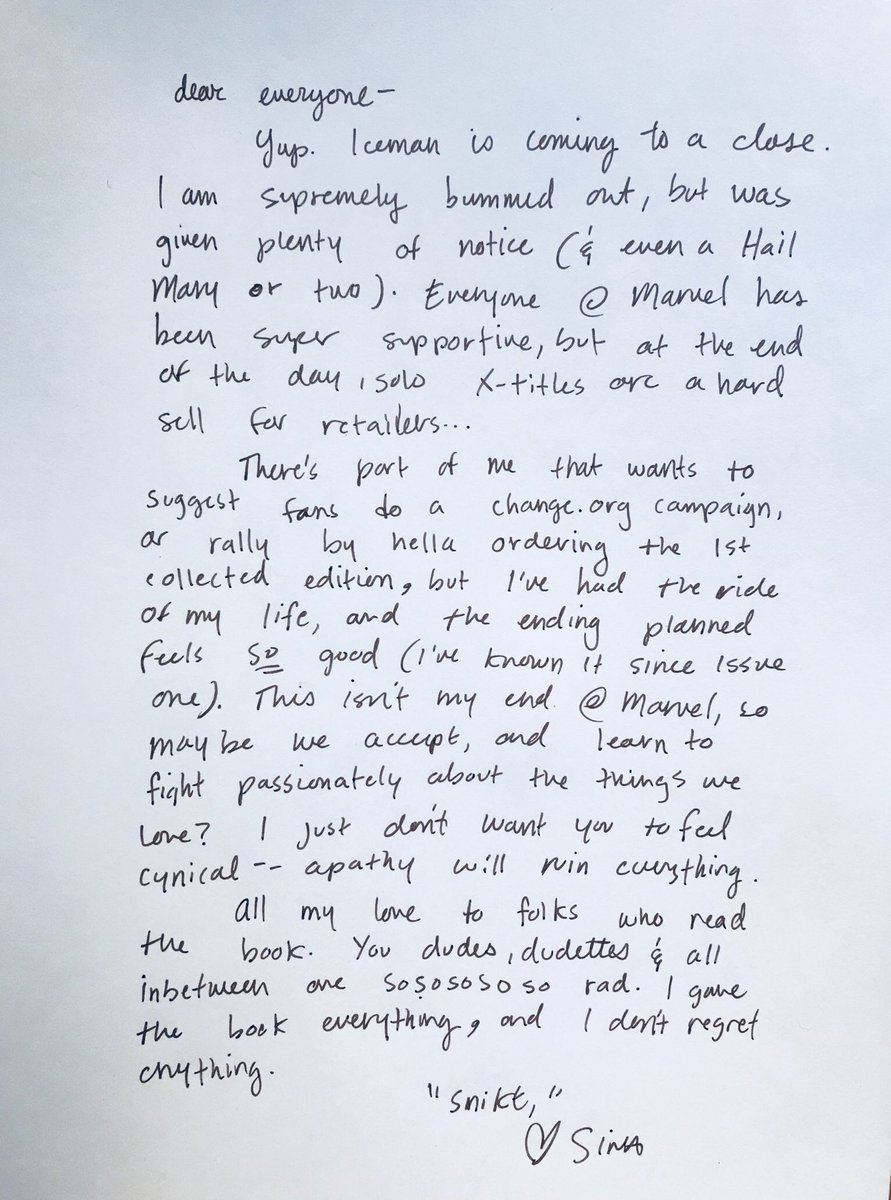 dear everyone-
Yup. Iceman is coming to a close.
I am supremely bummed out, but was
given plenty of notice (& even a Hail
Mary or two). Everyone @ Marvel has
been super supportive, but at the end
of the day, solo X-titles are a hard
sell for retailers...
There's part of me that wants to
suggest fans do a change.org campaign,
or rally by hella ordering the 1st
collected edition, but I've had the ride
of my life, and the ending planned
feels so good (I've known it since issue
one). This isn't my end @ Marvel, so
maybe we accept, and learn to
fight passionately about the things we
love? I just don't want you to feel
cynical -- apathy will ruin everything.
All my love to folks who read
the book. You dudes, dudettes & all
inbetween are sosososo so rad. I gave
the book everything, and I don't regret
anything.
"snikt,"
♡ Sina